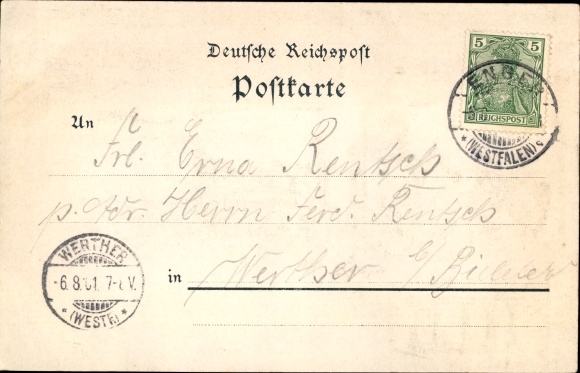 Deutsche Reichspost
Postkarte
5 5
REICHSPOST
ENGER
*(WESTFALEN)
An
Frl. Erna Rentsch
p. Adr. Herrn Ferd. Rentsch
in Werther b/
WERTHER
-6.8.01. 7-8 V.
*(WESTF.)*